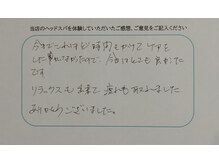 当店のヘッドスパを体験していただいたご感想、ご意見をご記入ください
今までこれほど時間をかけてケアを
した事がなかったので、今日はとても良かった
です
リラックスも出来て 疲れも取れました
ありがとうございました。